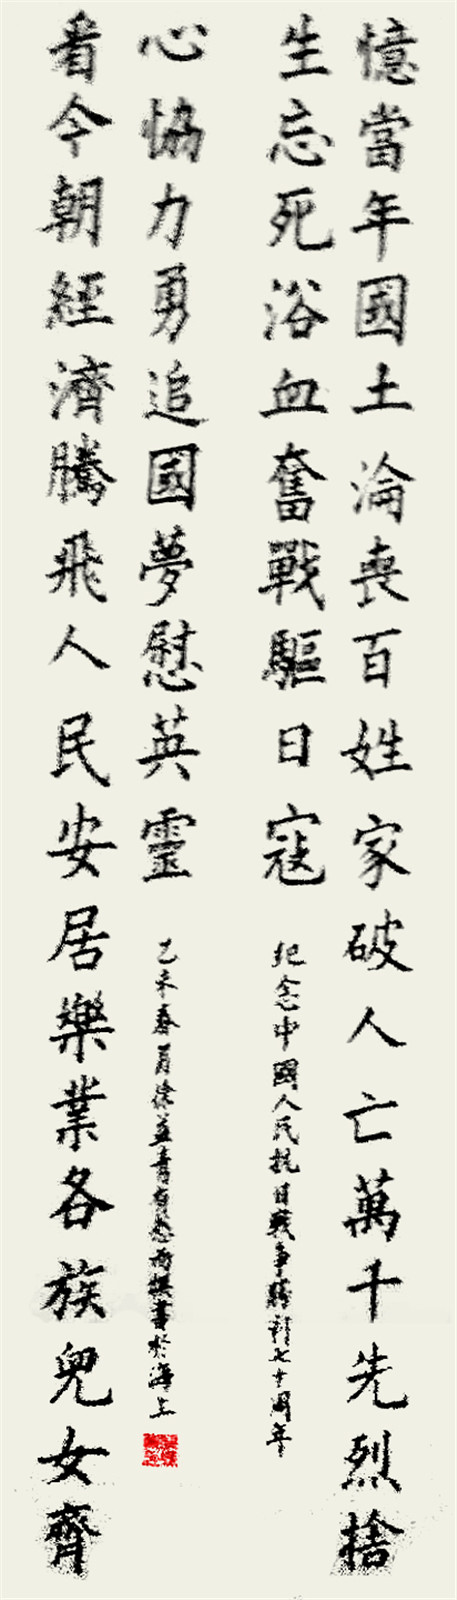 憶當年國土淪喪百姓家破人亡萬千先烈捨
生忘死浴血奮戰驅日寇
紀念中國人民抗日戰爭勝利七十周年
看今朝經濟騰飛人民安居樂業各族兒女齊
心恊力勇追國夢慰英靈
乙未春月徐益青有感而撰書於海上